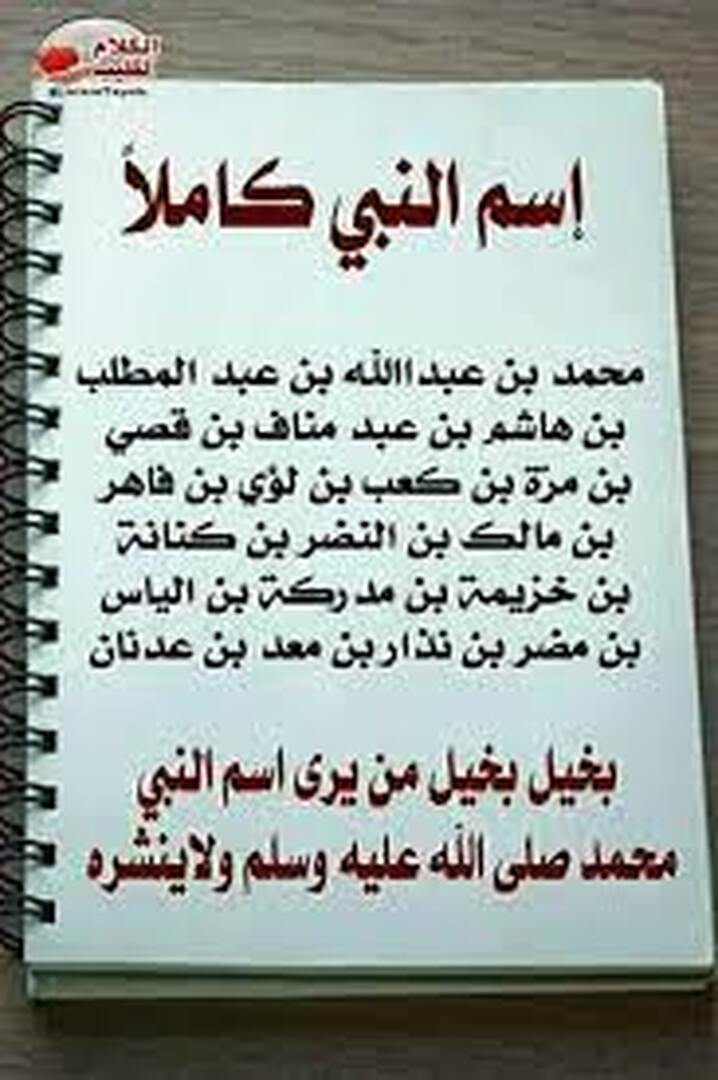 الكلام
الطيب
إسم النبي كاملاً
محمد بن عبداالله بن عبد المطلب
بن هاشم بن عبد مناف بن قصي
بن مرة بن كعب بن لؤي بن فاهر
بن مالك بن النضر بن كنانة
بن خزيمة بن مدركة بن الياس
بن مضر بن نذار بن معد بن عدنان
بخيل بخيل من يرى اسم النبي
محمد صلى الله عليه وسلم ولاينشره